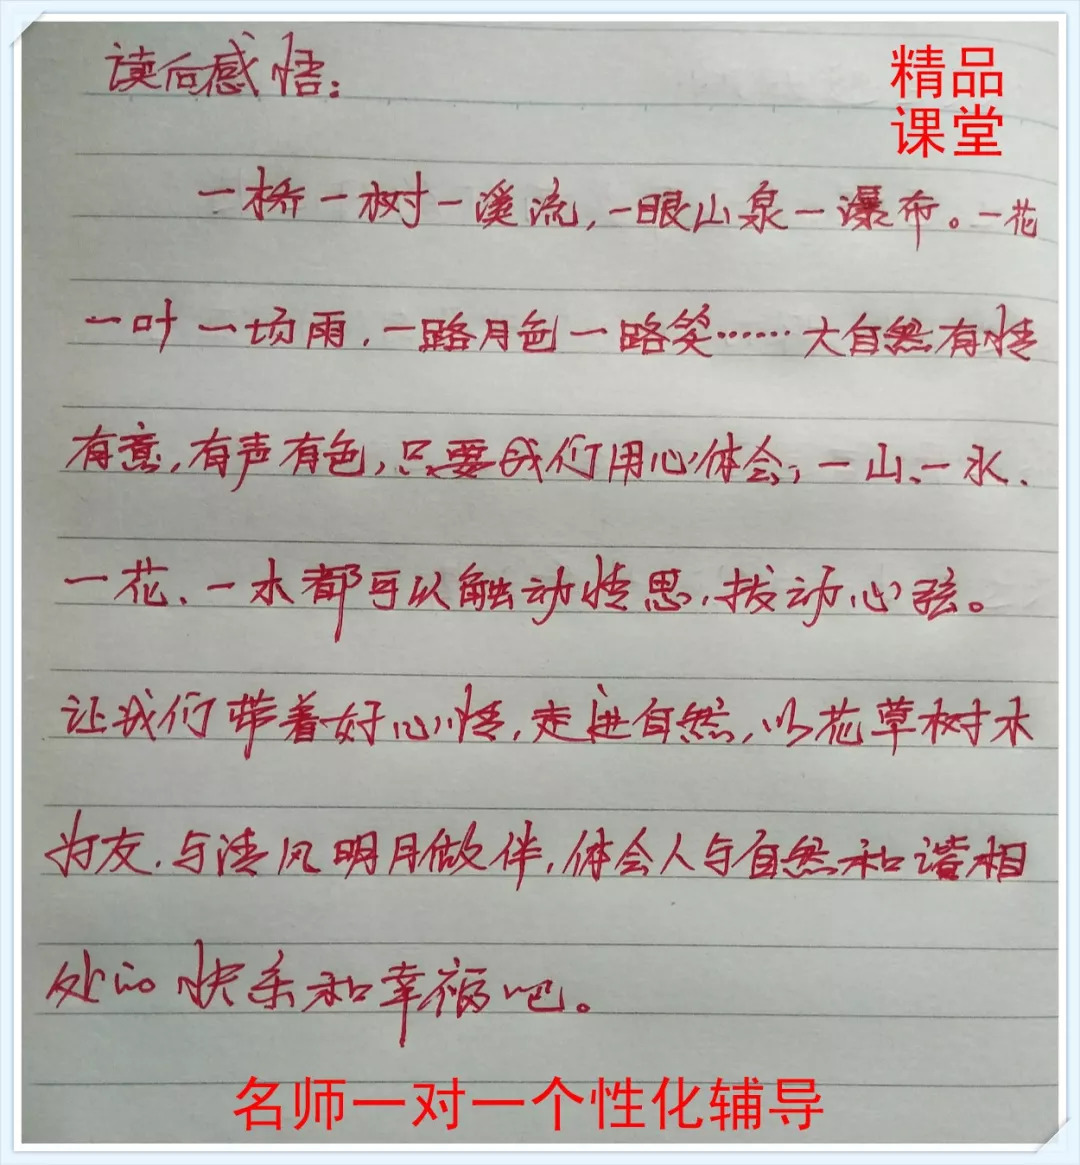 读后感悟:
精品
课堂
一桥一树一溪流,一眼山泉一瀑布。一花
一叶一场雨,一路月色一路笑……大自然有情
有意,有声有色,只要我们用心体会,一山、一水、
一花、一木都可以触动情思,拨动心弦。
让我们带着好心情,走进自然,以花草树木
为友,与清风明月做伴,体会人与自然和谐相
处的快乐和幸福吧。
名师一对一个性化辅导